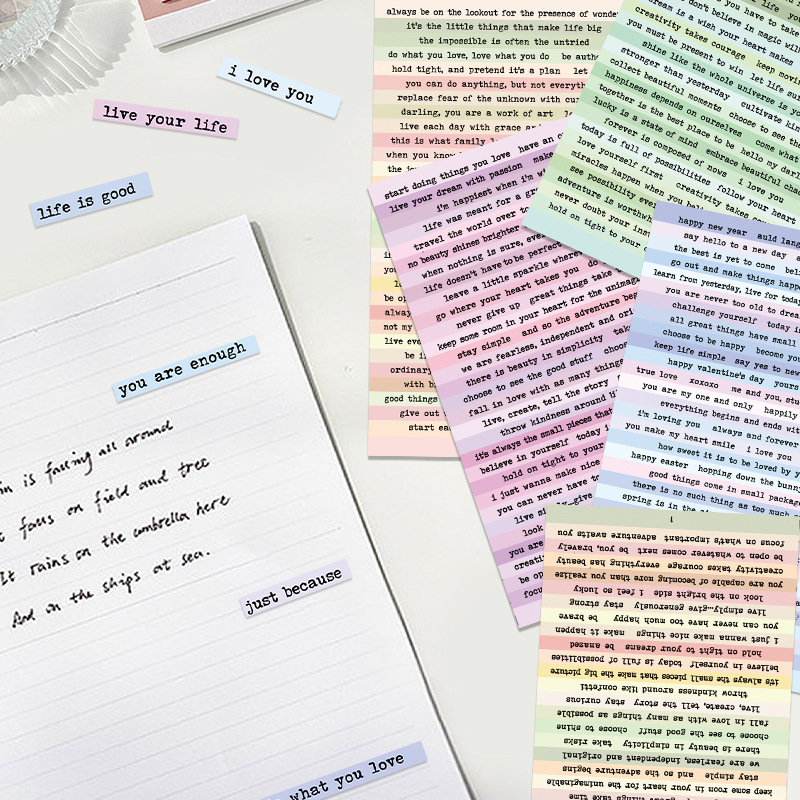 i love you
live your life
life is good
you are enough
is falling all around
on field and tree
It rains on the umbrella here
And in the ships at sea.
just because
what you love
always be on the lookout for the presence of
it's the little things that make life big
the impossible is often the untried
do what you love, love what you do be
hold tight, and pretend it's a plan let
you can do anything, but not
replace fear of the unknown with
darling, you are a work of art
live each day with grace
this is what family
when you
the
in
you
be
alway
not my
live eve
be
ordinary
with
good things
give out
start
start doing things you love have an
live your dream with passion make
i'm happiest when i'm
life was meant for a
travel the world over
no beauty shines brighter
when nothing is sure,
life doesn't have to be perfect
leave a little sparkle where
go where your heart takes you do
never give up great things take
keep some room in your heart for the
stay simple and so the adventure
we are fearless, independent and
there is beauty in simplicity
choose to see the good stuff
fall in love with as many things
live, create, tell the story
throw kindness around
it's always the small pieces that
believe in yourself today
hold on tight to your
i just wanna make nice
you can never have
live
look
you are
be
you have to take
don't believe in magic
dream is a wish your heart makes
creativity takes courage keep
you must be present to win let life
shine like the whole universe is
stronger than yesterday cultivate
collect beautiful moments choose to see the
happiness depends on ourselves come what
together is the best place to be hello my
lucky is a state of mind embrace beautiful
forever is composed of nows i love you
today is full of possibilities follow your heart
love yourself first creativity takes
miracles happen when you
see possibility
adventure is
never doubt your
hold on tight to your
happy new year auld lang
say hello to a new day
the best is yet to come
go out and make things
learn from yesterday, live for
you are never too old to
challenge yourself today
all great things have small
choose to be happy become
keep life simple say yes to new
happy valentine's day yours
true love xoxoxo me and you,
you are my one and only happily
everything begins and ends
i'm loving you always and forever
you make my heart smile i love you
how sweet it is to be loved by
happy easter hopping down the
good things come in small
there is no such thing as too much
spring is in the
1
focus on what's important adventure awaits you
be open to whatever comes next be you, bravely
creativity takes courage everything has beauty
you are capable of becoming more than you realize
look on the bright side i feel so lucky
live simply...give generously stay strong
you can never have too much happy be brave
i just wanna make nice things make it happen
hold on tight to your dreams be amazed
believe in yourself today is full of possibilities
it's always the small pieces that make the big picture
throw kindness around like confetti
live, create, tell the story stay curious
fall in love with as many things as possible
choose to see the good stuff choose to shine
there is beauty in simplicity take risks
we are fearless, independent and original
stay simple and so the adventure begins
keep some room in your heart for the unimaginable